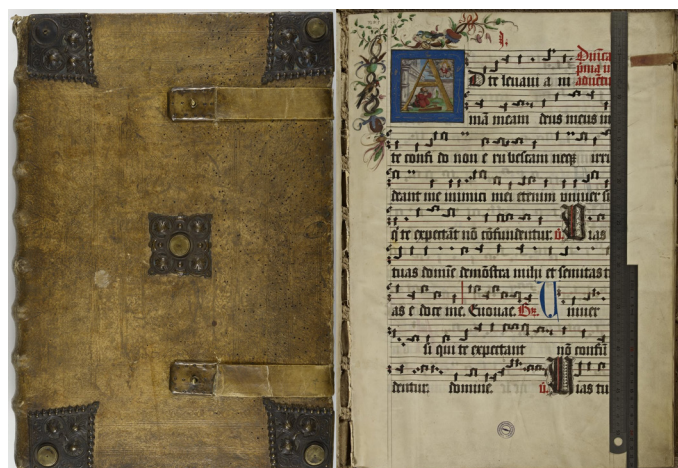 Ad te levavi a ni
mā meam deus meus in
te confi do non e ru bescam neqz irri
deant me inimici mei etenim univer si
q̄ te expectāt nō cōfundentur. v̄. Vias
tuas domine demōstra mihi et semitas t
as e doce me. Euouae. Univer
si qui te expectant nō confū
dentur. domine. v̄. Vias tu